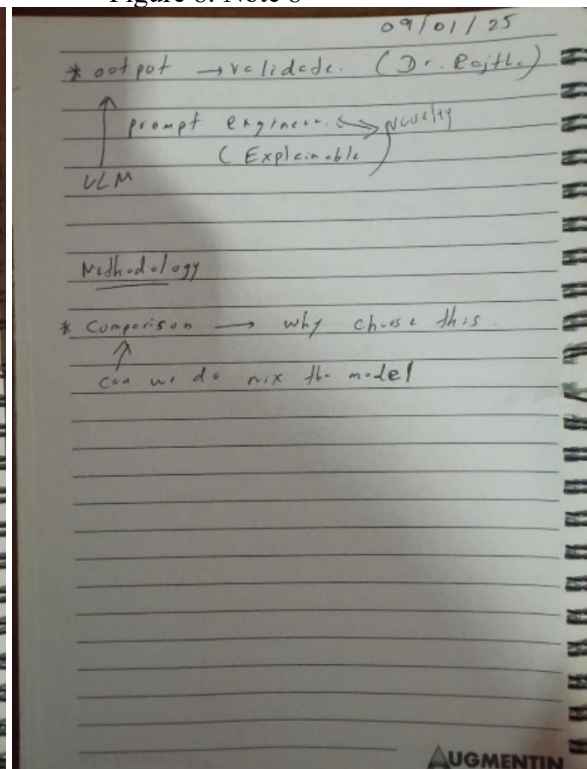 09/01/25
* output → validade. (Dr. Rajtha)
prompt engineer. Novelty
(Explainable)
VLM
Methodology
* Comparison → why choose this.
can we do mix the model
AUGMENTIN